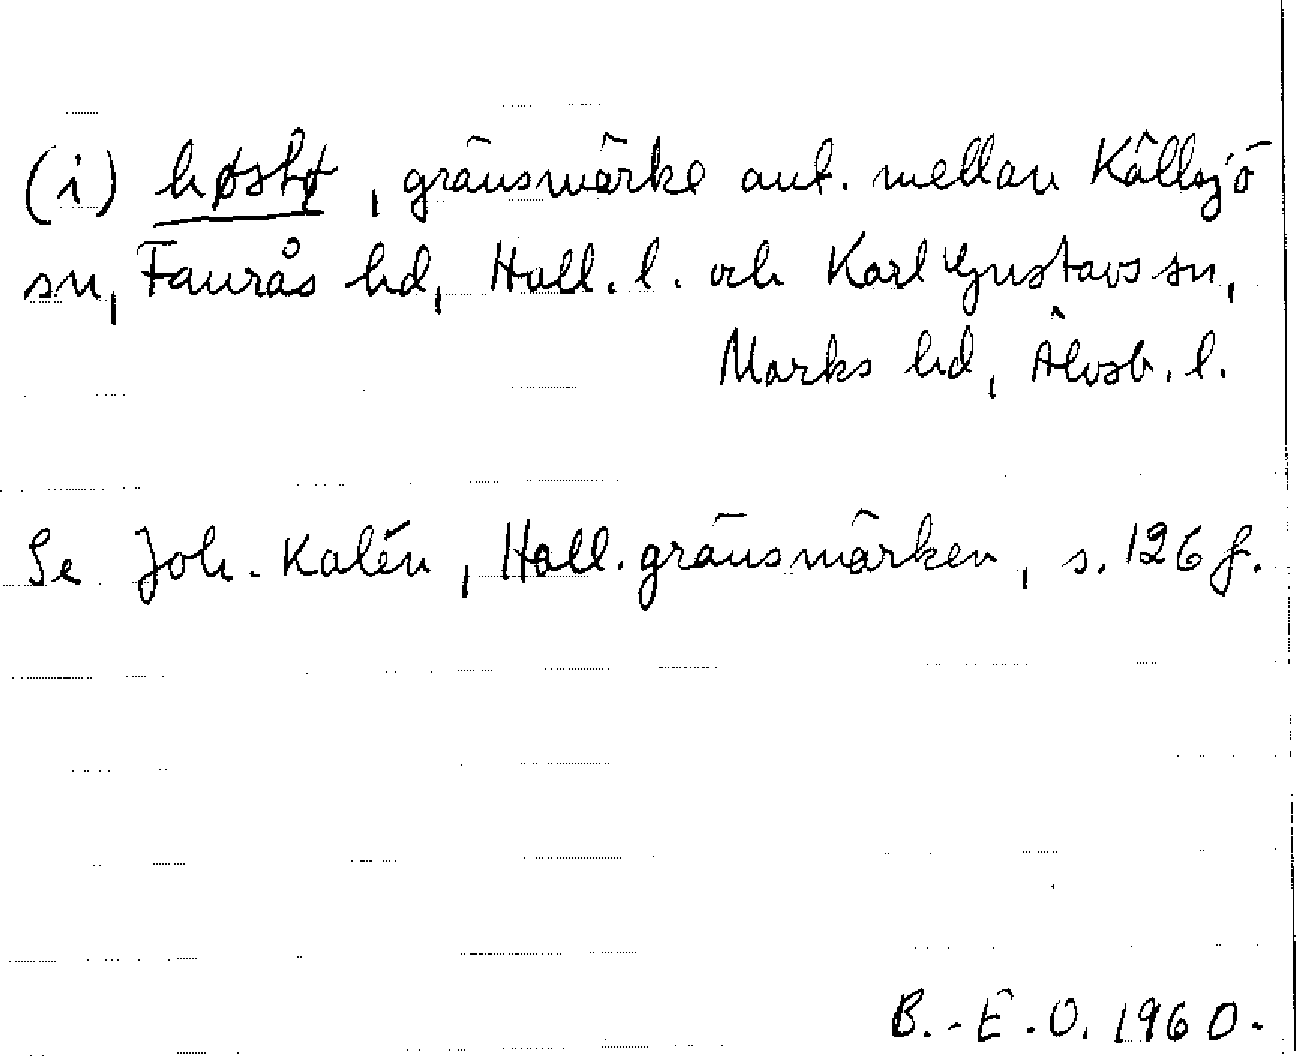 (i) høshø, gränsmärke ant. mellan Källsjö
sn, Faurås hd, Hall. l. och Karl Gustavs sn,
Marks hd, Älvsb. l.
Se Joh. Kalén, Hall. gränsmärken, s. 126 f.
B.-E. O. 1960.